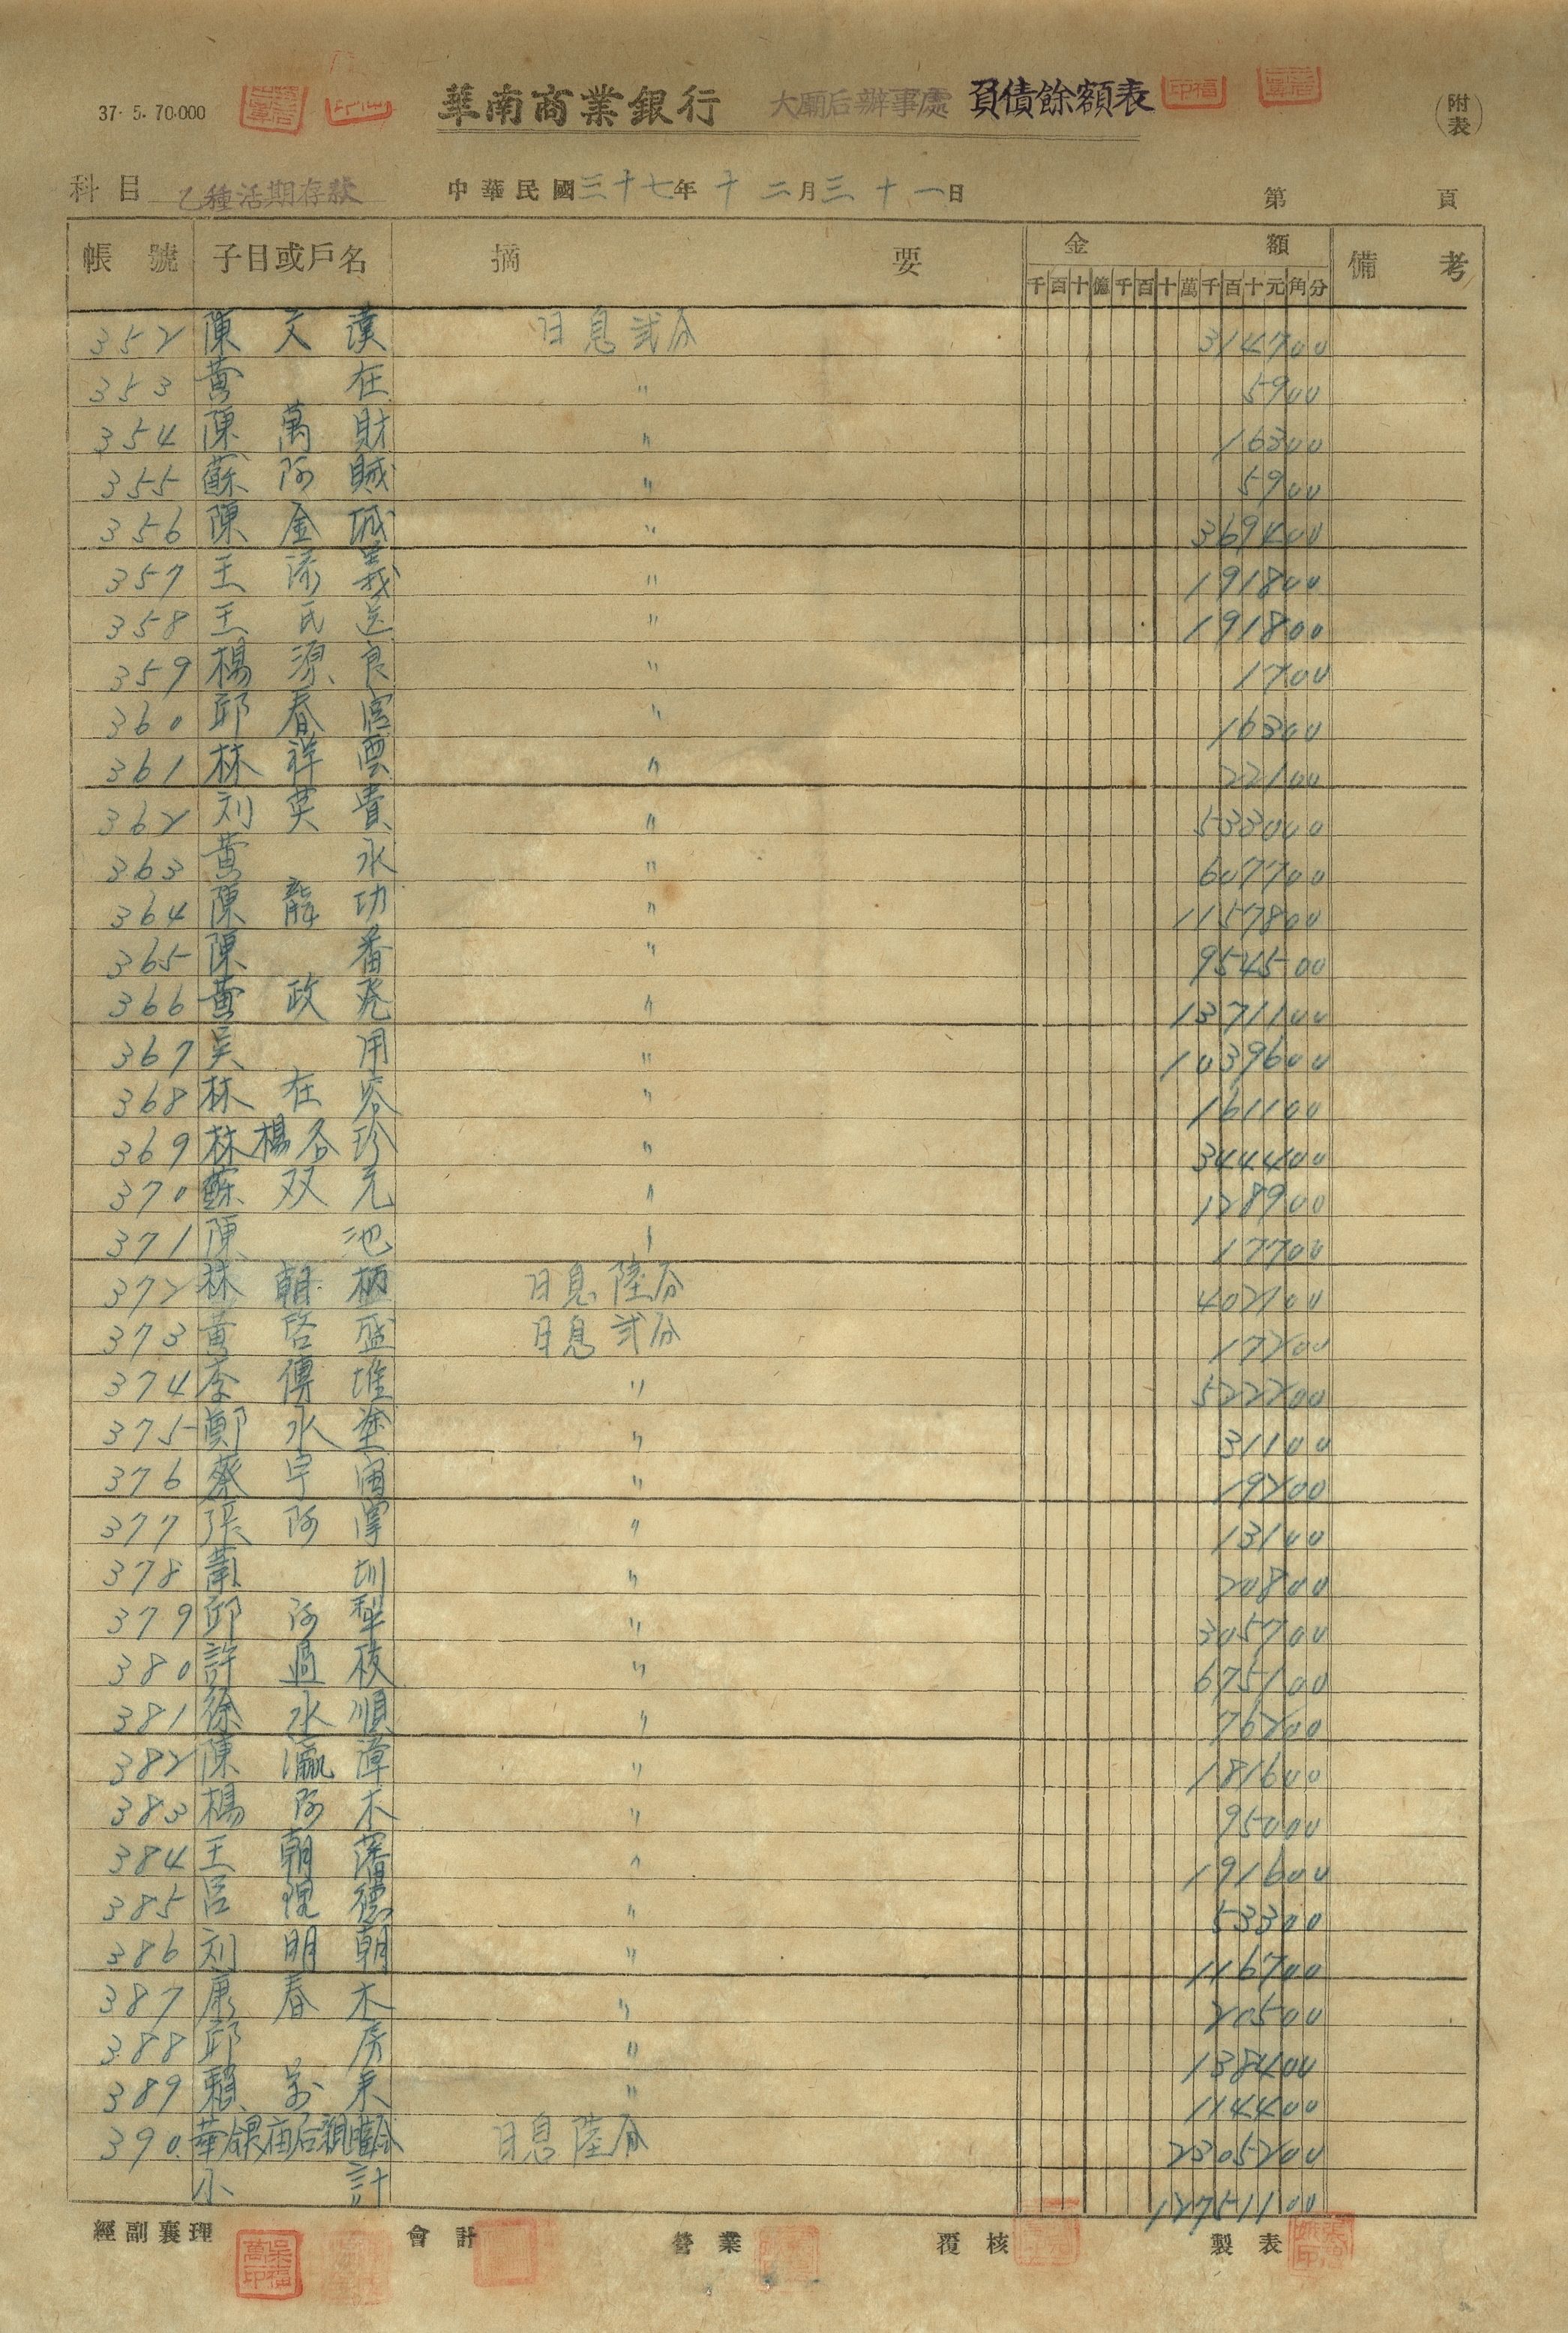 37. 5. 70.000
華南商業銀行 大廟后辦事處 負債餘額表
(附表)
科目 乙種活期存款 中華民國三十七年十二月三十一日 第 頁
帳號 子目或戶名 摘要 金額 備考
千百十億千百十萬千百十元角分
352 陳文漢 日息弍分 314700
353 黃在 〃 5900
354 陳萬財 〃 16300
355 蘇阿賊 〃 5900
356 陳金城 〃 369400
357 王添義 〃 191800
358 王氏送 〃 191800
359 楊源良 〃 1700
360 邱春宮 〃 16300
361 林祥雲 〃 22100
362 刘英貴 〃 533000
363 黃永 〃 607700
364 陳龍功 〃 1157800
365 陳番 〃 954500
366 黃政発 〃 1371100
367 吳用 〃 1039600
368 林在 〃 161100
369 林楊名珍 〃 344400
370 蘇双元 〃 128900
371 陳池 〃 17700
372 林朝柄 日息陸分 402100
373 黃啓盛 日息弍分 17200
374 李傳堆 〃 522200
375 鄭水塗 〃 31100
376 蔡宇 〃 19200
377 張阿 〃 13100
378 圳 〃 20800
379 邱阿犁 〃 305700
380 許過枝 〃 675100
381 徐水順 〃 76200
382 陳瀛漳 〃 181600
383 楊阿木 〃 95000
384 王朝藩 〃 191600
385 呂現德 〃 53300
386 刘明朝 〃 116700
387 康春木 〃 20500
388 邱房 〃 138400
389 賴万来 〃 114400
390. 華銀庙后親睦会 日息陸分 2305200
小計 12751100
經副襄理 會計 營業 覆核 製表